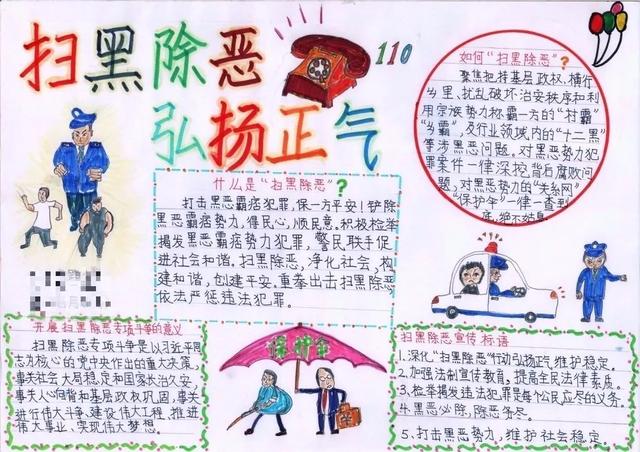 扫黑除恶
110
弘扬正气
如何"扫黑除恶"?
聚焦把持基层政权、横行
乡里、扰乱破坏治安秩序和利
用宗族势力称霸一方的"村霸"
"乡霸",及行业领域内的"十二黑"
等涉黑恶问题。对黑恶势力犯
罪案件一律深挖背后腐败问
题,对黑恶势力的"关系网"
"保护伞"一律一查到
底,绝不姑息
什么是"扫黑除恶"?
打击黑恶霸痞犯罪,保一方平安!铲除
黑恶霸痞势力,得民心,顺民意,积极检举
揭发黑恶霸痞势力犯罪,警民联手促
进社会和谐。扫黑除恶,净化社会,构
建和谐,创建平安。重拳出击扫黑除恶
依法严惩违法犯罪。
开展扫黑除恶专项斗争的意义
扫黑除恶专项斗争是以习近平同
志为核心的党中央作出的重大决策,
事关社会大局稳定和国家长治久安,
事关人心向背和基层政权巩固,事关
进行伟大斗争、建设伟大工程、推进
伟大事业、实现伟大梦想。
保护伞
扫黑除恶宣传标语
1、深化"扫黑除恶"行动弘扬正气维护稳定。
2、加强法制宣传教育,提高全民法律素质。
3、检举揭发违法犯罪是每个公民应尽的义务。
4、黑恶必除,除恶务尽。
5、打击黑恶势力,维护社会稳定